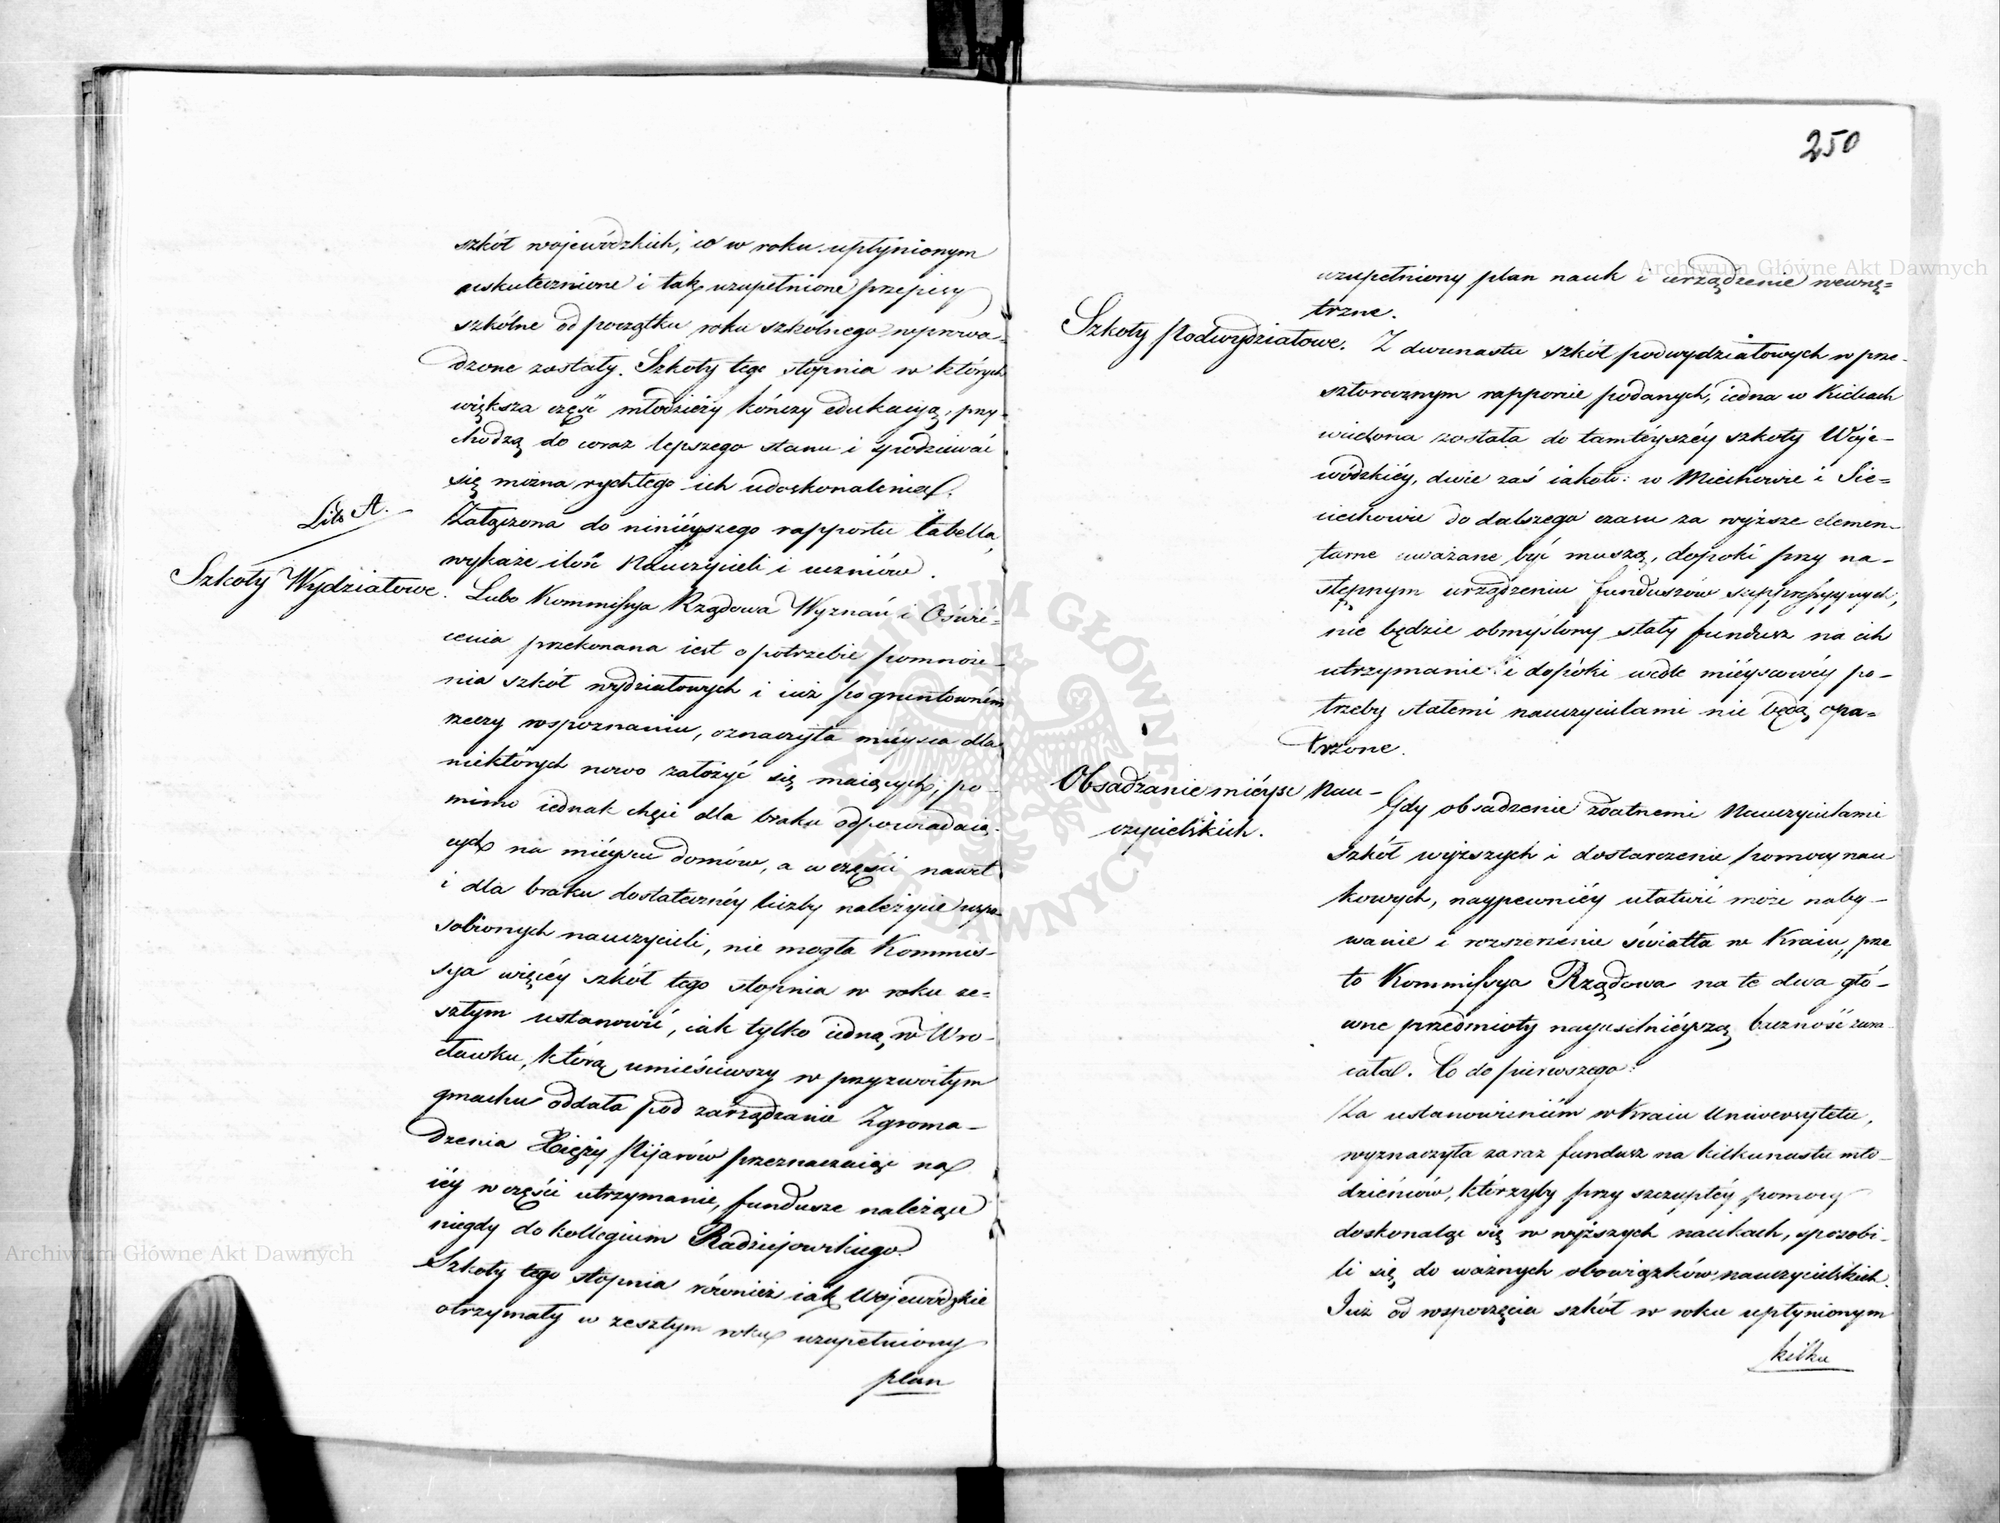 szkół wojewódzkich, co w roku upłynionym
uskutecznione i tak uzupełnione przepisy
szkólne od początku roku szkólnego wprowa-
dzone zostały. Szkoły tego stopnia w których
większa część młodzieży kończy edukacyą, przy-
chodzą do coraz lepszego stanu i spodziewać
się można rychłego ich udoskonalenia.
Litt A.
Załączona do ninieyszego rapportu tabella,
wykaże ilość Nauczycieli i uczniów.
Szkoły Wydziałowe.
Lubo Kommissya Rządowa Wyznań i Oświé-
cenia przekonana iest o potrzebie pomnoże-
nia szkół wydziałowych i iuż po gruntowném
rzeczy rozpoznaniu, oznaczyła mieysca dla
niektórych nowo założyć się maiących, po-
mimo iednak chęci dla braku odpowiadaią-
cych na mieyscu domów, a w części nawet
i dla braku dostatecznéy liczby należycie uspo-
sobionych nauczycieli, nie mogła Kommis-
sya więcéy szkół tego stopnia w roku ze-
szłym ustanowić, iak tylko iedną w Wro-
cławku, którą umieściwszy w przyzwoitym
gmachu oddała pod zarządzanie Zgroma-
dzenia Xięży Pijarów przeznaczaiąc na
iéy w części utrzymanie, fundusze należące
niegdy do kollegium Radziejowskiego.
Szkoły tego stopnia również iak Wojewódzkie
otrzymały w zeszłym roku uzupełniony
plan
250
uzupełniony plan nauk i urządzenie wewnę=
trzne.
Szkoły Podwydziałowe.
Z dwunastu szkół podwydziałowych w prze-
szłorocznym rapporcie podanych, iedna w Kielcach
wcielona została do tamtéyszéy szkoły Woje-
wódzkiéy, dwie zaś iakoto: w Miechowie i Sie-
ciechowie do dalszego czasu za wyższe elemen-
tarne uważane być muszą, dopóki przy na-
stępnym urządzeniu funduszów suppressyynych,
nie będzie obmyślony stały fundusz na ich
utrzymanie i dopóki wedle mieyscowéy po-
trzeby stałemi nauczycielami nie będą opa-
trzone.
Obsadzanie mieysc Nau-
czycielskich.
Gdy obsadzenie zdatnemi Nauczycielami
szkół wyższych i dostarczenie pomocy nau
kowych, naypewniéy ułatwić może naby-
wanie i rozszerzenie światła w Kraiu, prze
to Kommissya Rządowa na te dwa głó-
wne przedmioty nayusilniéyszą baczność zwra-
cała. Co do pierwszego:
Za ustanowieniem w Kraiu Uniwersytetu,
wyznaczyła zaraz fundusz na kilkunastu mło-
dzieńców, którzyby przy szczupłéy pomocy
doskonaląc się w wyższych naukach, sposobi-
li się do ważnych obowiązków nauczycielskich.
Już od rozpoczęcia szkół w roku upłynionym
kilku
Archiwum Główne Akt Dawnych
Archiwum Główne Akt Dawnych
ARCHIWUM GŁÓWNE AKT DAWNYCH